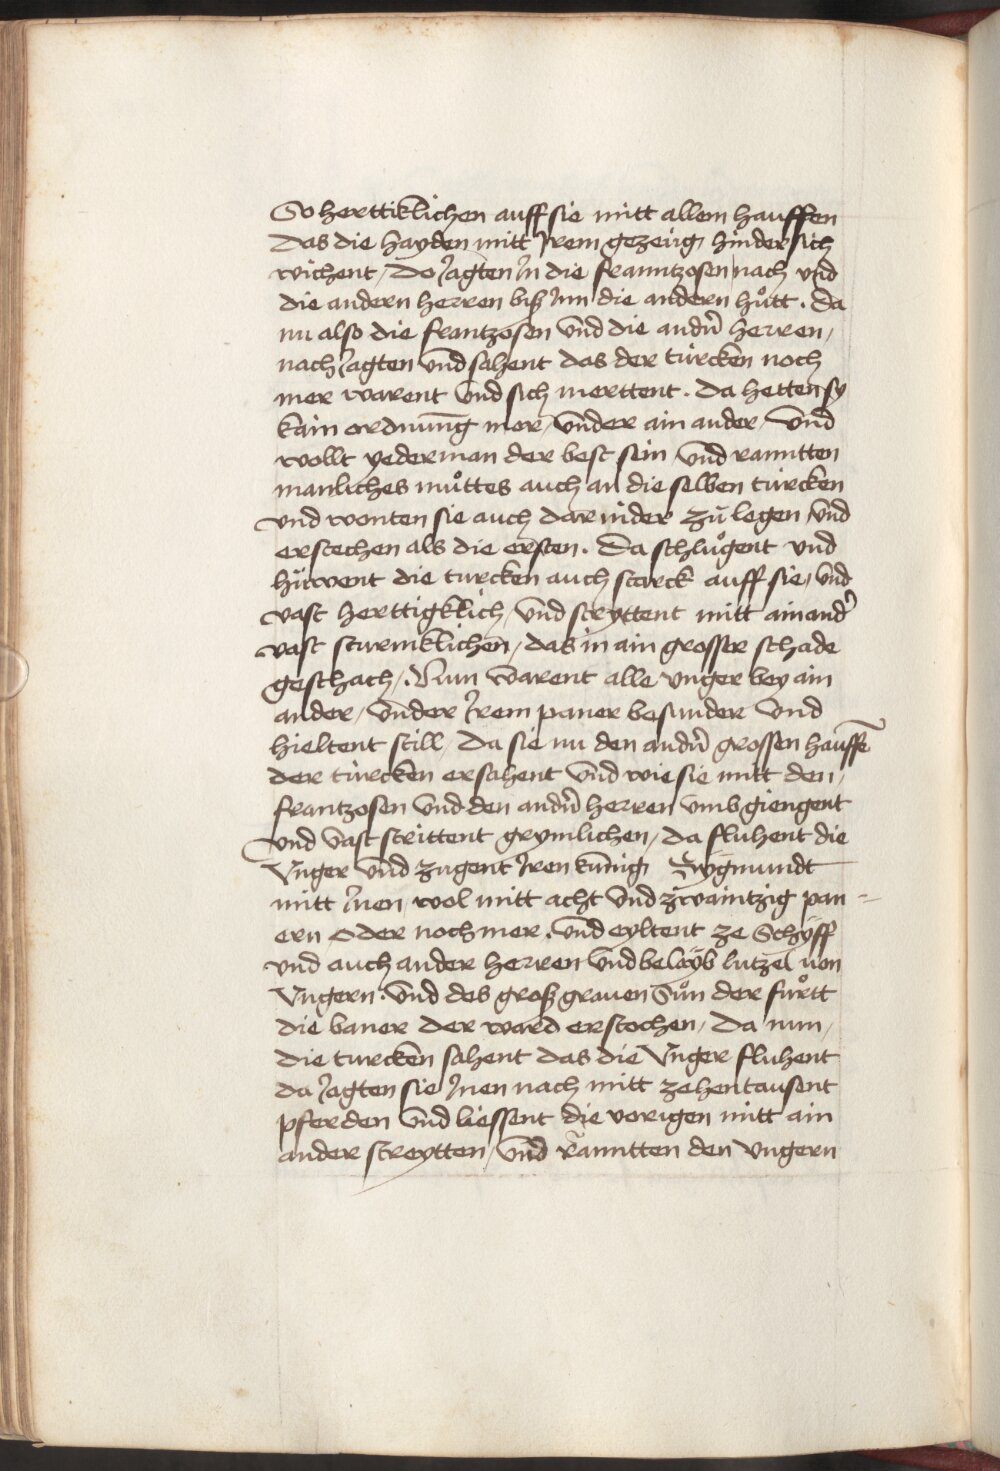 So herttiklichen auff sie mitt allem hauffen
das die hayden mitt Jrem gezeüg hinder sich
wichent / do Jagten Jn die franntzosen nach vnd
die andern herren biß Jnn die andern hůtt . da
nu also die frantzosen vnd die andn̄ herren /
nach Jagten vnd sahent das der türcken noch
mer warent vnd sich merttent . da hetten sy
kain ordnung mer / vnder ain ander / vnd
wollt yederman der best sein vnd ranntten
manliches můttes auch an die selben türcken
vnd wonten sie auch dar nider zů legen vnd
erstechen als die ersten . da schlůgent vnd
hüwent die turcken auch starck auff sie / vnd
vast herttigklich / vnd stryttent mitt ain andr̄
vast sturmklichen / das in ain grosser schade
geschach / . Nun warent alle vnger bey ain
ander / vnder Jrem paner besunder vnd
hieltent still / da sie nu den andn̄ grossen hauffē
der türcken ersahent vnd wie sie mitt den /
frantzosen vnd den andn̄ herren vmb giengent
vnd vast strittent grymlichen / da fluhent die
Vnger vnd zugent Jren künig Zygmundt
mitt Jnen wol mitt acht vnd zwaintzig pan =
ern oder noch mer . vnd eyltent ze Schyff
vnd auch ander herren vnd belayb lutzel von
Vngern . vnd des groß grauen Sůn der fůrtt
die baner der ward erstochen / da nun /
die turcken sahent das die Vnger fluhent
da Jagten sie Jnen nach mitt zehentausent
pferden vnd liessent die vorigen mitt ain
ander streytten / vnd ranntten den vngern